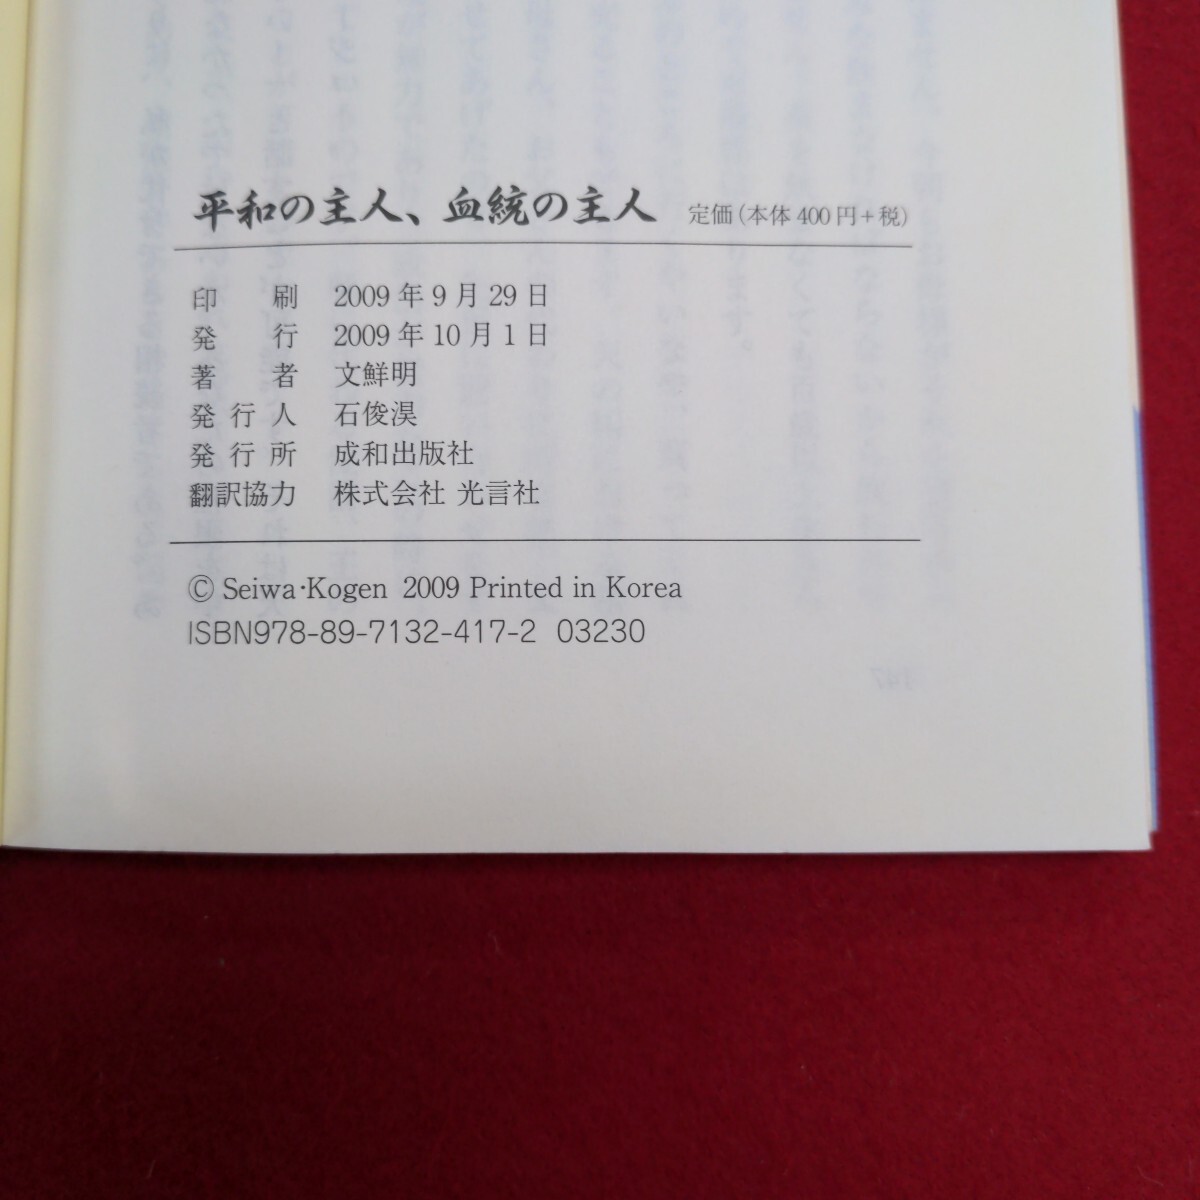 平和の主人、血統の主人 定価(本体400円+税)
印 刷 2009年9月29日
発 行 2009年10月1日
著 者 文鮮明
発行人 石俊淏
発行所 成和出版社
翻訳協力 株式会社 光言社
© Seiwa·Kogen 2009 Printed in Korea
ISBN978-89-7132-417-2 03230